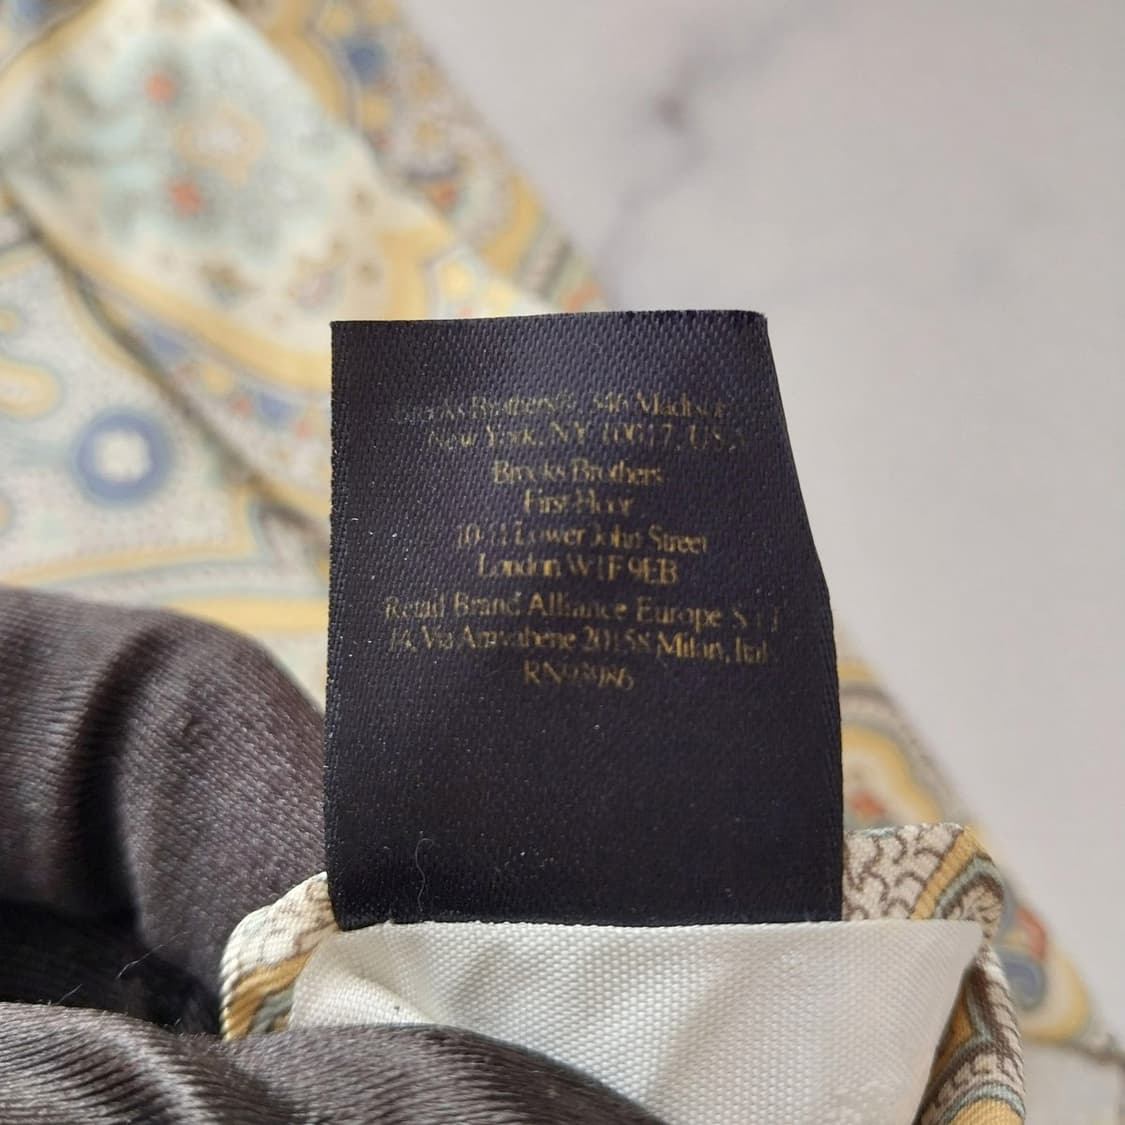 Brooks Brothers®, 346 Madison
New York, NY 10017, USA
Brooks Brothers
First Floor
10-11 Lower John Street
London W1F 9EB
Retail Brand Alliance Europe S.r.l
Via 20158 Milan, Italy